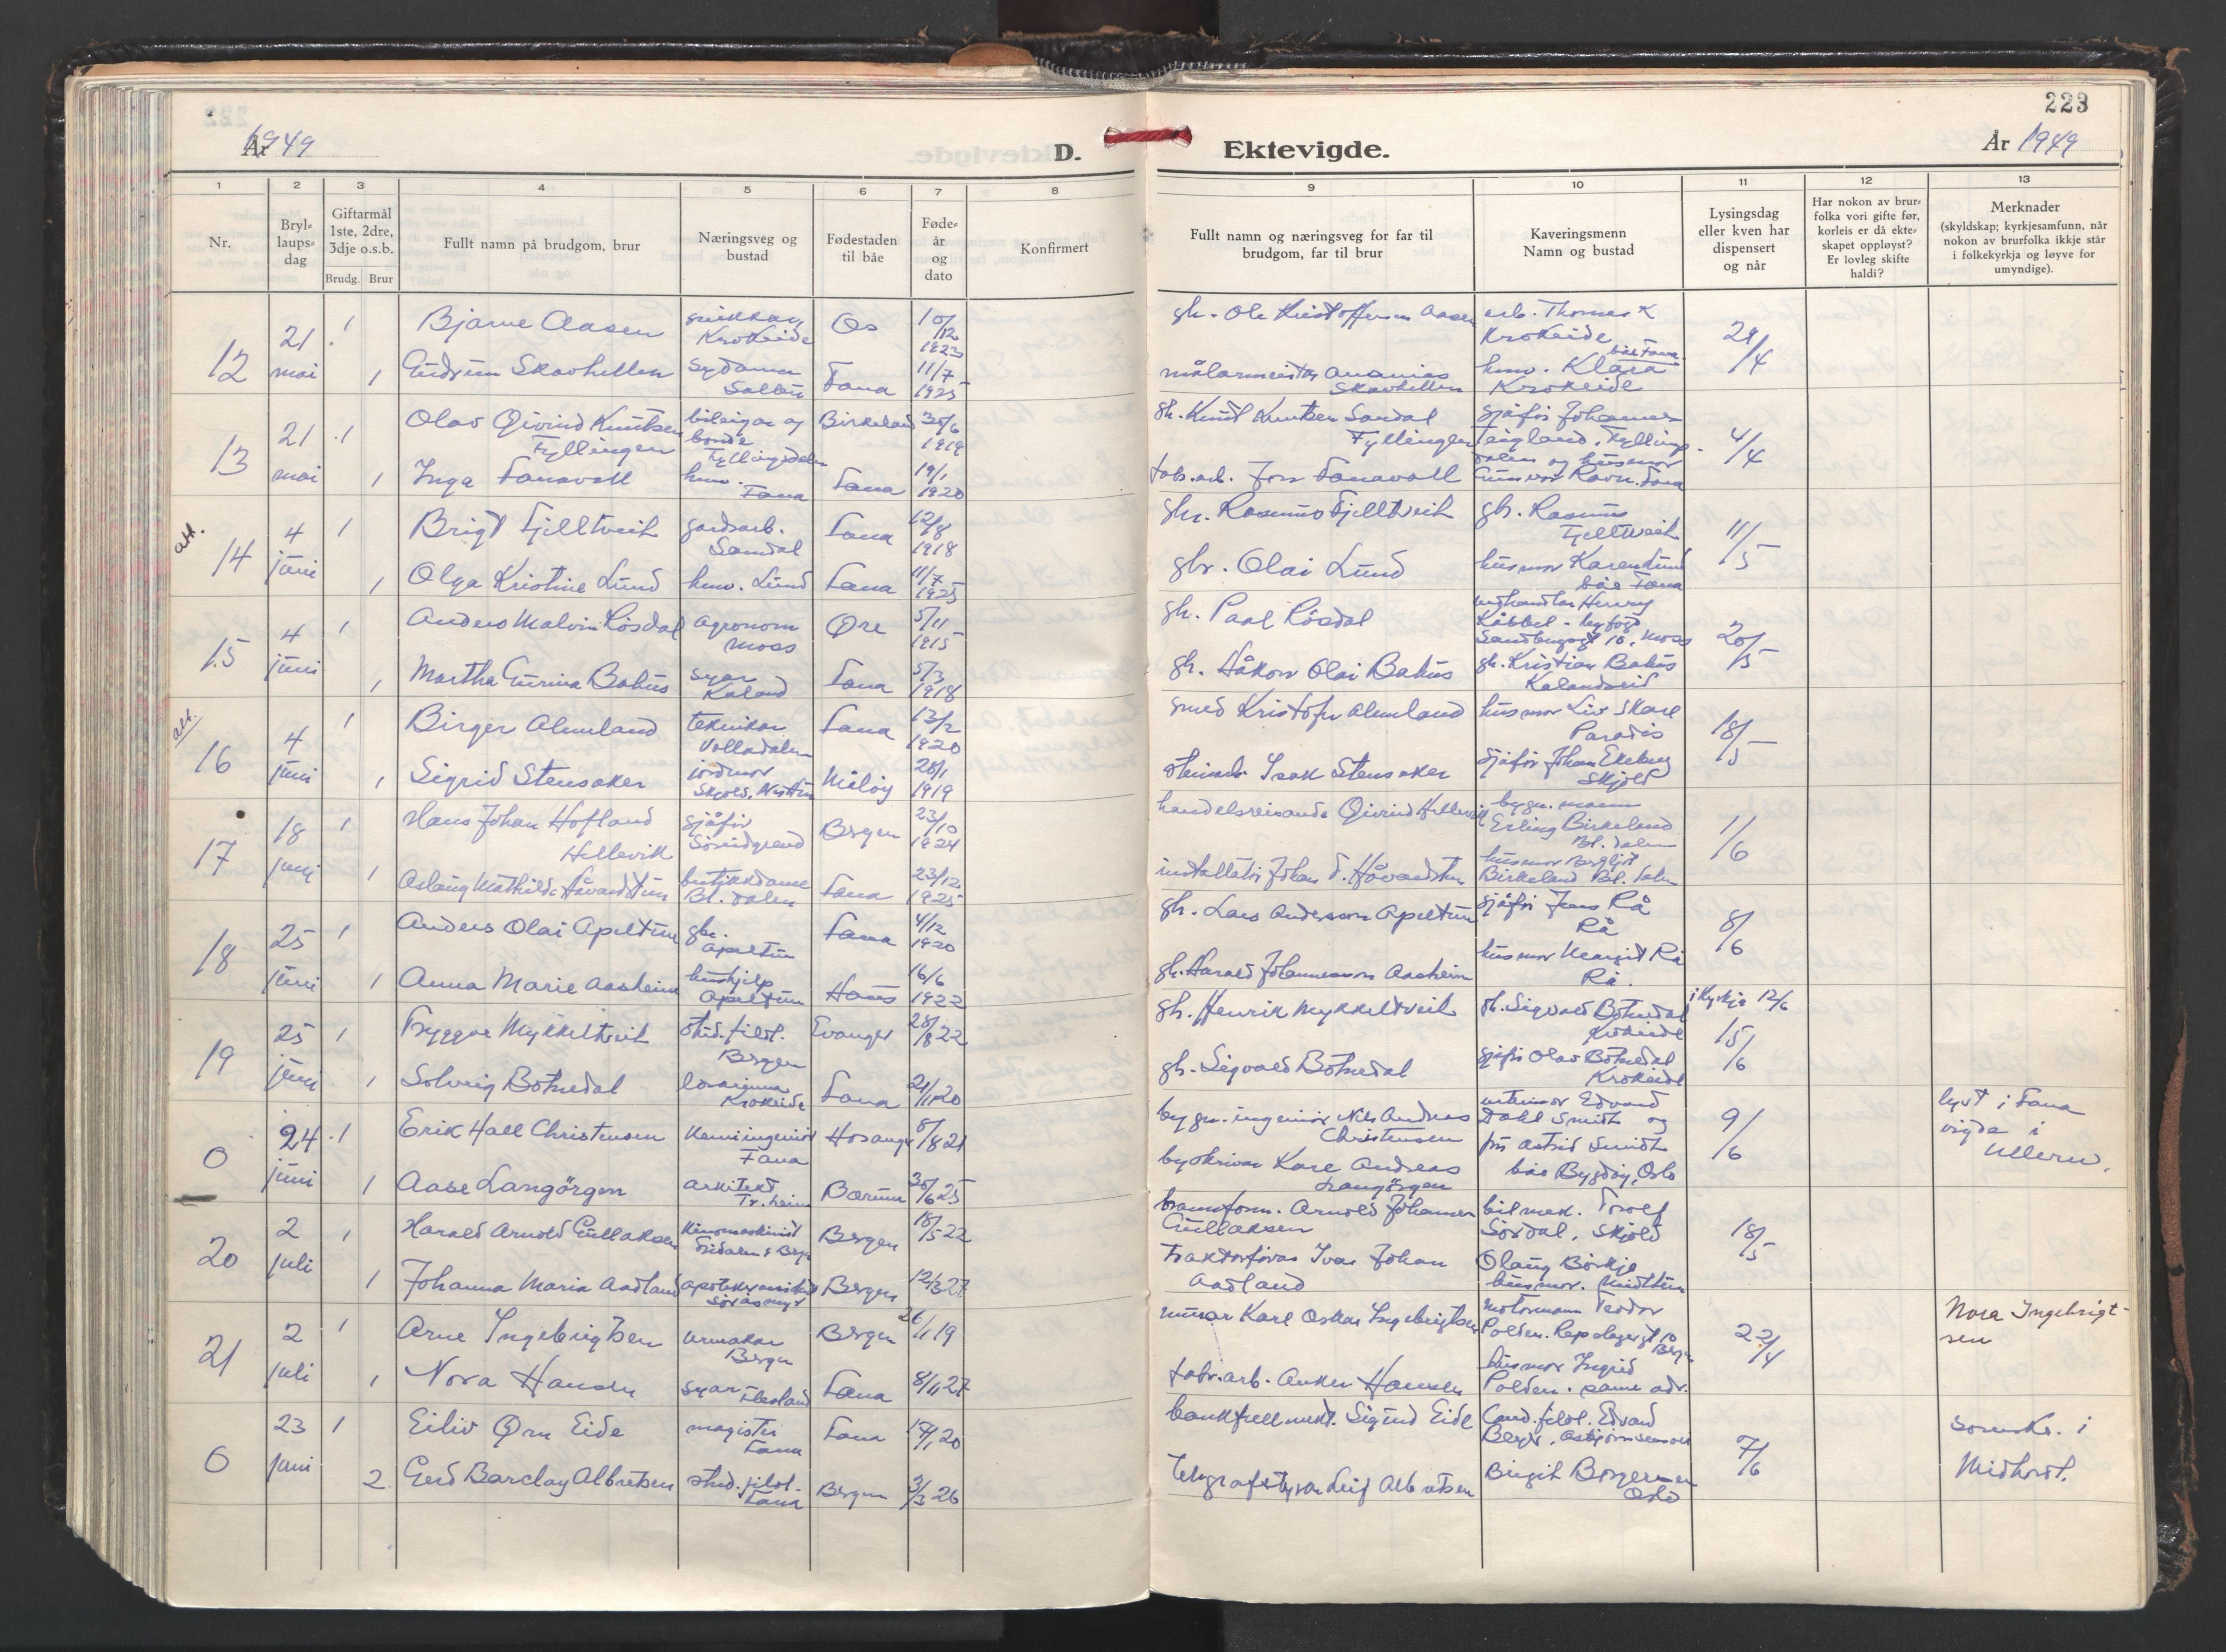 223
År 1949
D.
Ektevigde.
År 1949
1
2
3
4
5
6
7
8
9
10
11
12
13
Nr.
Bryl-
laups-
dag
Giftarmål
1ste, 2dre,
3dje o.s.b.
Brudg. Brur
Fullt namn på brudgom, brur
Næringsveg og
bustad
Fødestaden
til båe
Føde-
år
og
dato
Konfirmert
Fullt namn og næringsveg for far til
brudgom, far til brur
Kaveringsmenn
Namn og bustad
Lysingsdag
eller kven har
dispensert
og når
Har nokon av brur-
folka vori gifte før,
korleis er då ekte-
skapet oppløyst?
Er lovleg skifte
haldi?
Merknader
(skyldskap; kyrkjesamfunn, når
nokon av brurfolka ikkje står
i folkekyrkja og løyve for
umyndige).
12
21
mai
1
Bjarne Aasen
Krokeide
Os
10/12
1923
gbr. Ole Kristoffersen Aasen
arb. Thomas K
Krokeide
1
Gudrun Skavhellen
Sydame
Fana
11/7
1925
målarmeister Ananias
Skavhellen
hmo. Klara
Krokeide
båe Fana
29/4
13
21
mai
1
Olav Øivind Knutsen
Fyllingen
bileigar og
bonde
Fyllingsdalen
Birkeland
30/6
1919
gb. Knut Knutsen Sandal
Fyllingen
sjåfør Johannes
Teigland, Fyllings-
dalen og husmor
Gunvor Ravn. Fana
1
Inga Fanavoll
hmo.
Fana
Fana
19/1
1920
fabr. arb. Jon Fanavoll
4/4
att.
14
4
juni
1
Brigt Fjelltveit
gardsarb.
Sandal
Fana
12/8
1918
gbr. Rasmus Fjelltveit
gb. Rasmus
Fjelltveit
1
Olga Kristine Lund
hmo. Lund
Fana
11/7
1925
gbr. Olai Lund
husmor Karen Lund
båe Fana
11/5
15
4
juni
1
Anders Malvin Røsdal
agronom
Moss
Øre
5/11
1915
gb. Paal Røsdal
vedhandlar Henry
Sandbugt 10, Moss
1
Martha Gurina Bahus
syar
Kaland
Fana
5/3
1918
gb. Håkon Olai Bahus
gb. Kristian Bahus
Kalandseid
20/5
att.
16
4
juni
1
Birger Almeland
teknikar
Volladalen
Fana
13/2
1920
smed Kristofer Almeland
husmor Liv Skare
Paradis
1
Sigrid Stensaker
jordmor
Skjold, Nesttun
Måløy
28/1
1919
Isak Stensaker
sjåfør Johan Ekeberg
Skjold
18/5
17
18
juni
1
Hans Johan Hofland
Hellevik
sjåfør
Søreidgrend
Bergen
23/10
1924
handelsreisande Øivind Hellevik
bygn. mann
Erling Birkeland
Bl. dalen
1
Aslaug Mathilde Håvardstun
butikkdame
Bl. dalen
Fana
23/12
1925
installatør Johan d. Håvardstun
husmor Bergljot
Birkeland Bl. dalen
1/6
18
25
juni
1
Anders Olai Apeltun
gbr.
Apeltun
Fana
4/12
1920
gb. Lars Andersson Apeltun
sjåfør Jens Rå
Rå
1
Anna Marie Aasheim
hushjelp
Apeltun
Haus
16/6
1922
gb. Harald Johannesson Aasheim
husmor Margit Rå
Rå.
8/6
19
25
juni
1
Tryggve Mykkeltveit
stud. filol.
Bergen
Evanger
28/8 22
gb. Henrik Mykkeltveit
gb. Sigvald Botnedal
Krokeide
i kyrkje 12/6
1
Solveig Botnedal
lærarinna
Krokeide
Fana
21/11 20
gb. Sigvald Botnedal
sjåfør Olav Botnedal
Krokeide
15/6
0
24
juni
1
Erik Hall Christensen
kemiingeniør
Fana
Hosanger
8/8 21
bygn. ingeniør Nils Andreas
Christensen
Edvard
Dahl Smith og
fru Astrid Smith
båe Bygdøy, Oslo
1
Aase Langörgen
arkitekt
Tr. heim
Bærum
30/6 25
byskrivar Kare Andreas
Langörgen
9/6
lyst i Fana
vigde i
Ullern.
20
2
juli
1
Harald Arnold Gullaksen
kinomaskinist
Fridalen, Bergen
Bergen
18/5 22
brannform. Arnold Johannes
Gullaksen
bilmek. Torolf
Sørdal, Skjold
1
Johanna Maria Aadland
Søråsvegen
Bergen
12/3 27
Traktorførar Ivar Johan
Aadland
Olaug Børkja
husmor. Midttun
18/5
21
2
juli
1
Arne Ingebrigtsen
urmakar
Bergen
Bergen
26/1 19
murar Karl Oskar Ingebrigtsen
motormann Teodor
Polden. Repslagergt 10
Bergen
1
Nora Hansen
syar
Flesland
Fana
8/11 27
fabr. arb. Anker Hansen
husmor Ingrid
Polden. same adr.
22/4
Nora Ingebrigt-
sen
0
23
juni
1
Eiliv Örn Eide
magister
Fana
Fana
17/1 20
bankfullmekt. Sigurd Eide
Cand. filol. Edvard
Beyer,
2
Gerd Barclay Albretsen
stud. filol.
Fana
Bergen
3/3 26
telegrafstyrar Leif Albretsen
Birgit Borgersen
Oslo
7/6
sorenskr. i
Midhordl.